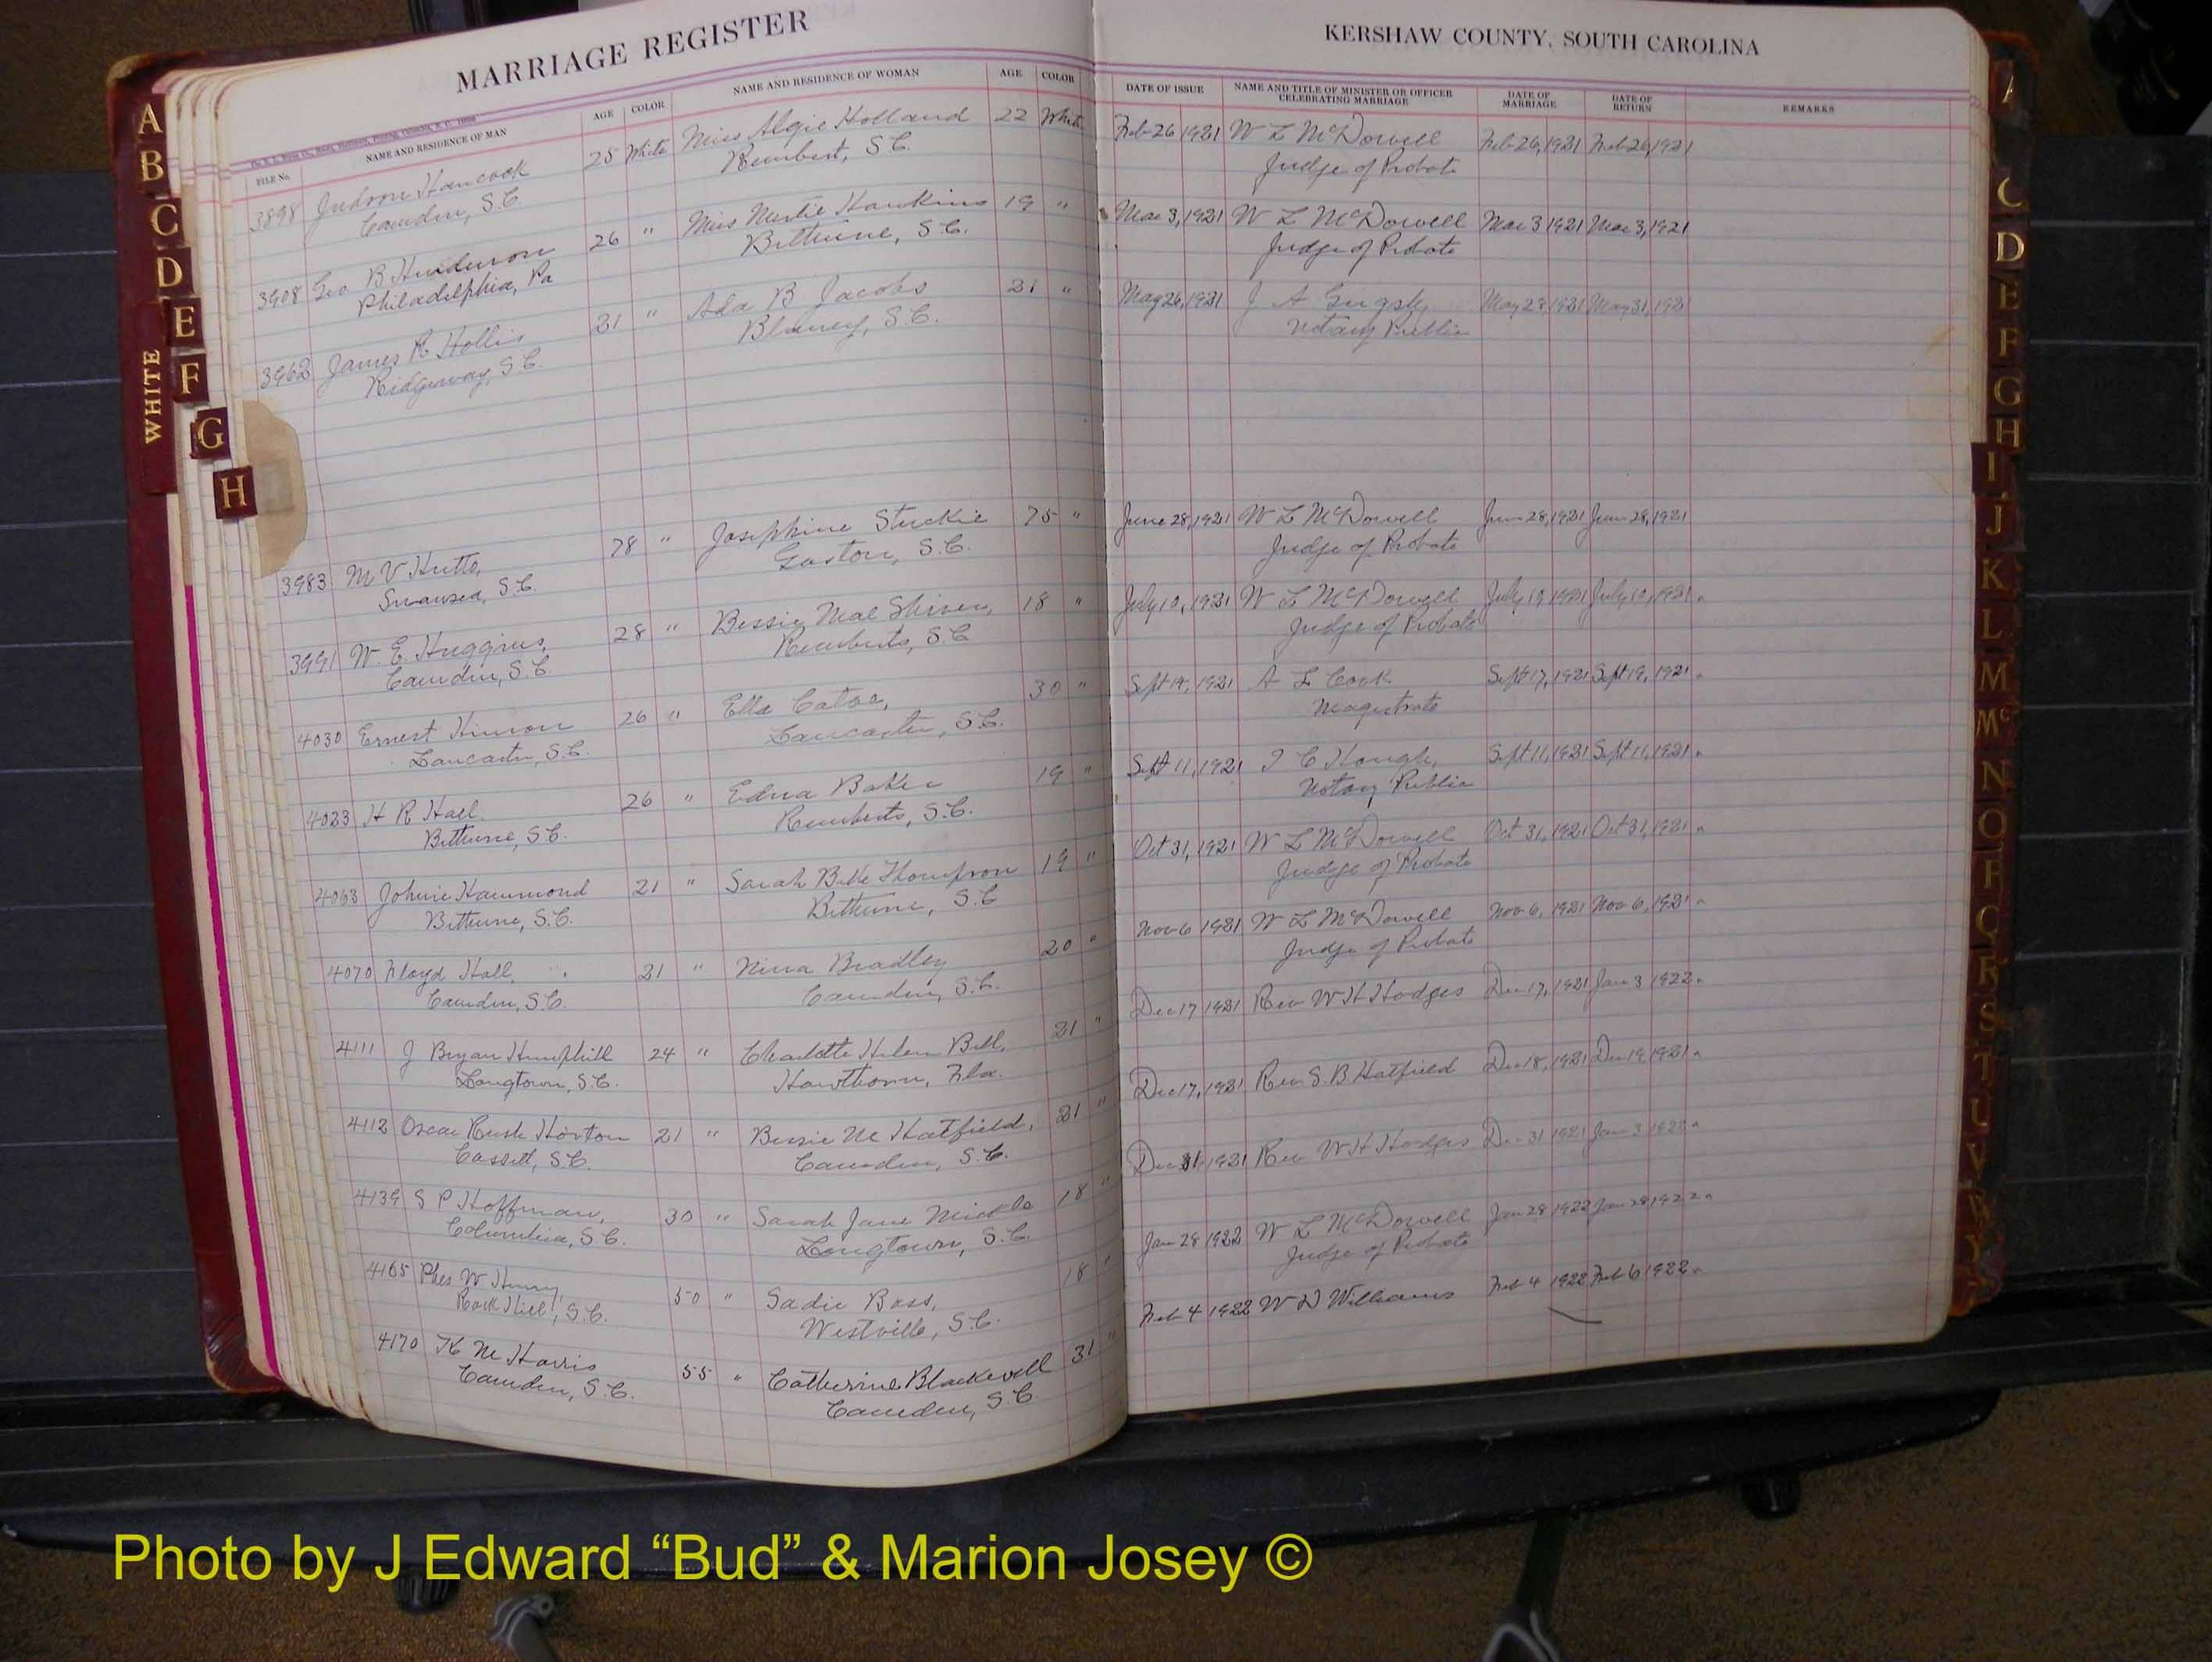 MARRIAGE REGISTER
KERSHAW COUNTY, SOUTH CAROLINA
FILE No. NAME AND RESIDENCE OF MAN AGE COLOR NAME AND RESIDENCE OF WOMAN AGE COLOR DATE OF ISSUE NAME AND TITLE OF MINISTER OR OFFICER CELEBRATING MARRIAGE DATE OF MARRIAGE DATE OF RETURN REMARKS
3898 Judson Hancock 25 White Miss Algie Holland 22 White Feb 26 1921 W L McDowell Feb 26, 1921 Feb 26, 1921
Camden, S.C. Rembert, S.C. Judge of Probate
3908 Geo B Henderson 26 " Miss Mertie Hawkins 19 " Mar 3, 1921 W L McDowell Mar 3 1921 Mar 3, 1921
Philadelphia, Pa Bethune, S.C. Judge of Probate
3962 James R Hollis 21 " Ada B Jacobs 21 " May 26, 1921 J A May 1921 May 31, 1921
Ridgeway, S.C. Blaney, S.C. Notary Public
3983 M V Hutto, 78 " Josephine Stuckie 75 " June 28, 1921 W L McDowell June 28, 1921 June 28, 1921
Swansea, S.C. Gaston, S.C. Judge of Probate
3991 W. E. Huggins, 28 " Bessie Mae Shiver, 18 " July 10, 1921 W L McDowell July 10, 1921 July 10, 1921
Camden, S.C. Remberts, S.C Judge of Probate
4030 Ernest Hinson 26 " Ella Catoe, 30 " Sept 14, 1921 A L Cook Sept 17, 1921 Sept 19, 1921
Lancaster, S.C. Lancaster, S.C. Magistrate
4023 H R Hall. 26 " Edna Baker 19 " Sept 11, 1921 T C Hough, Sept 11, 1921 Sept 11, 1921
Bethune, S.C. Remberts, S.C. Notary Public
4063 Johnie Hammond 21 " Sarah Belle Thompson 19 " Oct 31, 1921 W L McDowell Oct 31, 1921 Oct 31, 1921
Bethune, S.C. Bethune, S.C Judge of Probate
4070 Floyd Hall, 21 " Nina Bradley 20 " Nov 6 1921 W L McDowell Nov 6, 1921 Nov 6, 1921
Camden, S.C. Camden, S.C. Judge of Probate
4111 J Bryan Hemphill 24 " Charlotte Helen Bell, 21 " Dec 17 1921 Rev W H Hodges Dec 17, 1921 Jan 3 1922
Longtown, S.C. Hawthorn, Fla.
4112 Oscar Rush Horton 21 " Bessie M Hatfield, 21 " Dec 17, 1921 Rev S. B Hatfield Dec 18, 1921 Dec 19, 1921
Cassett, S.C. Camden, S.C.
4139 S P Hoffman, 30 " Sarah Jane Mickle 18 " Dec 31 1921 Rev W H Hodges Dec 31 1921 Jan 3 1922
Columbia, S.C. Longtown, S.C.
4165 W Henry, 50 " Sadie Bass, 18 " Jan 28 1922 W L McDowell Jan 28 1922 Jan 28 1922
Rock Hill, S.C. Westville, S.C. Judge of Probate
4170 M Harris 55 " Catherine Blackwell 31 " Feb 4 1922 W D Williams Feb 4 1922 Feb 6 1922
Camden, S.C. Camden, S C
A
B
C
D
E
F
G
H
WHITE
A
C
D
E
F
G
H
I
J
K
L
M
Mc
N
O
P
Q
R
S
T
U
V
W
Y
Photo by J Edward “Bud” & Marion Josey ©